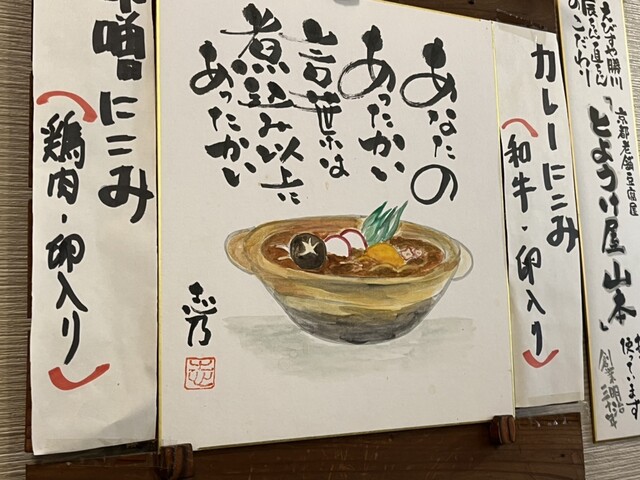 えびすや勝川
のこだわり
京都老舗豆腐屋
「とようけ屋山本」
使ています
カレーにこみ
(和牛・卵入り)
あなたの
あったかい
言葉は
煮込み以上に
あったかい
志乃
味噌にこみ
(鶏肉・卵入り)